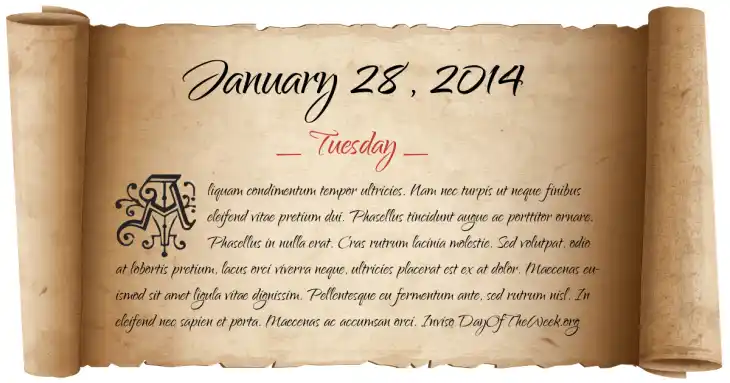 January 28, 2014
_ Tuesday _
Aliquam condimentum tempor ultricies. Nam nec turpis ut neque finibus
eleifend vitae pretium dui. Phasellus tincidunt augue ac porttitor ornare.
Phasellus in nulla erat. Cras rutrum lacinia molestie. Sed volutpat, odio
at lobortis pretium, lacus orci viverra neque, ultricies placerat est ex at dolor. Maecenas eu-
ismod sit amet ligula vitae dignissim. Pellentesque eu fermentum ante, sed rutrum nisl. In
eleifend nec sapien et porta. Maecenas ac accumsan orci. Inviso DayOfTheWeek.org